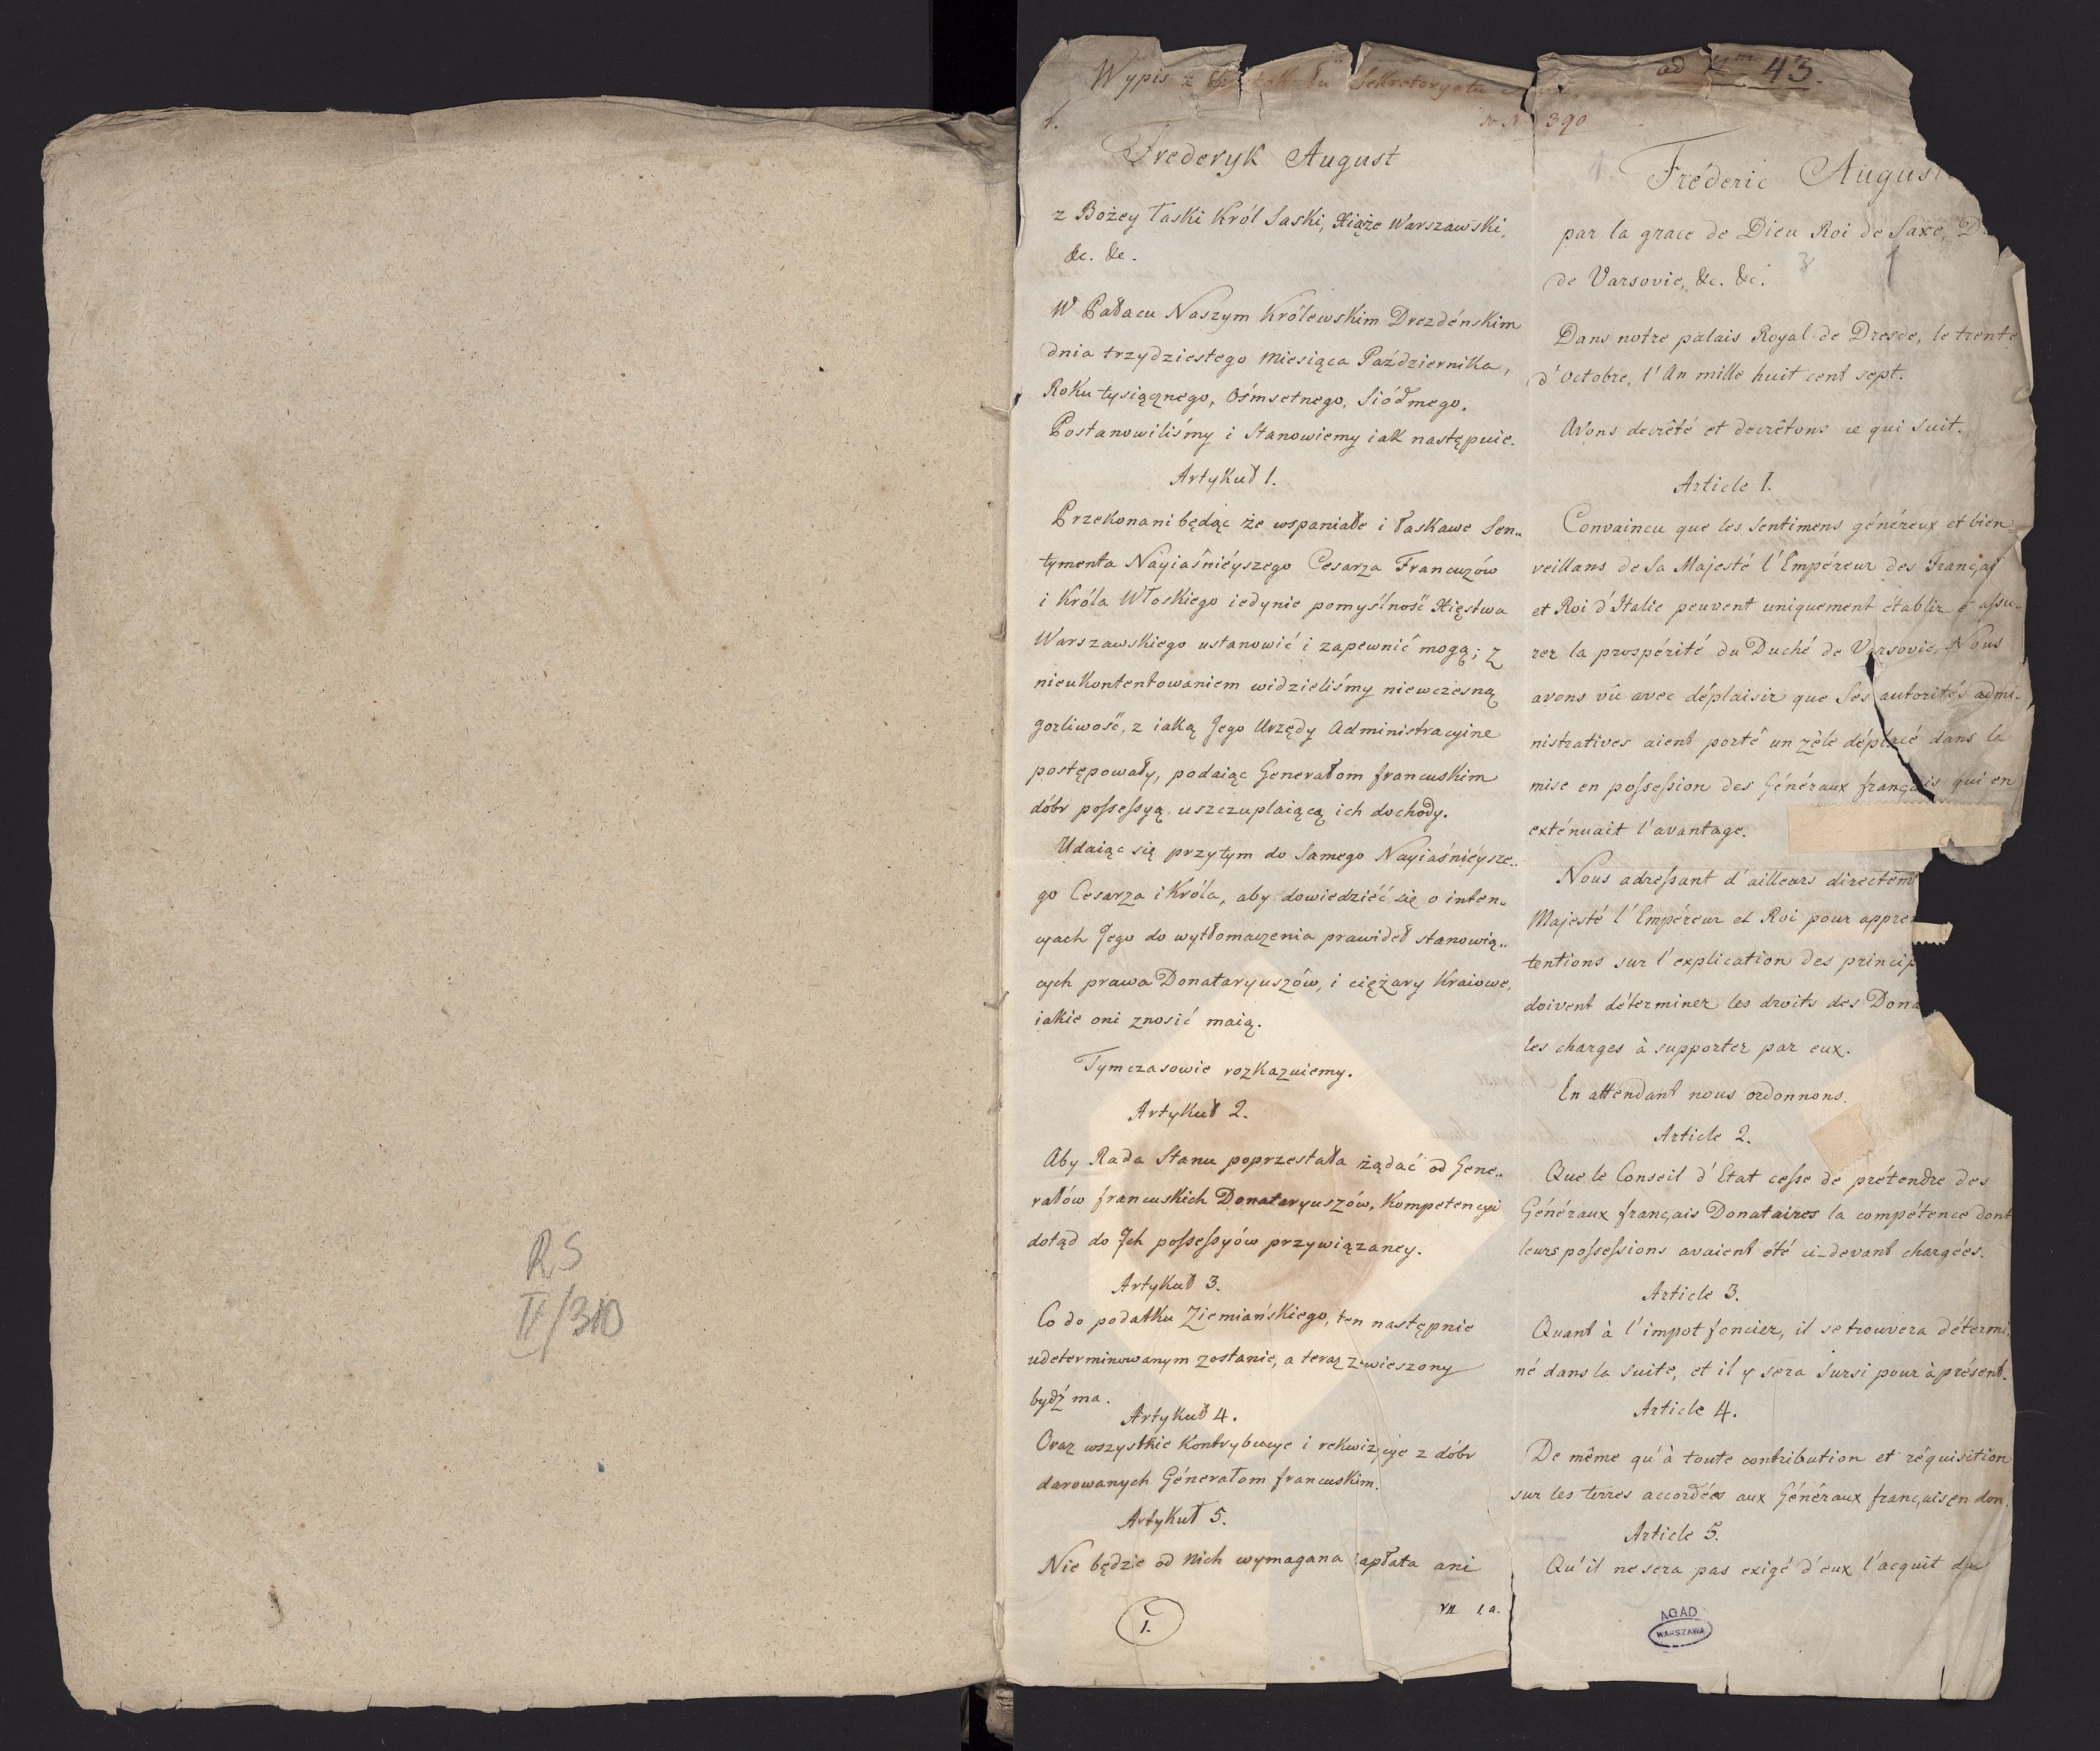 RS
II/310
Wypis z Protokułu Sekretoryatu
ad Nm 43.
1.
390
Frederyk August
z Bożey Łaski Król Saski, Xiąże Warszawski,
&c. &c.
W Pałacu Naszym Królewskim Drezdénskim
dnia trzydziestego Miesiąca Października,
Roku tysiącznego, Ośmsetnego, Siódmego.
Postanowiliśmy i Stanowiemy iak następuie.
Artykuł 1.
Przekonani będąc że wspaniałe i łaskawe Sen„
tymenta Nayiaśniéyszego Cesarza Francuzów
i Króla Włoskiego iedynie pomyślność Xięstwa
Warszawskiego ustanowić i zapewnić mogą; z
nieukontentowaniem widzieliśmy niewczesną
gorliwość, z iaką Jego Urzędy Administracyine
postępowały, podaiąc Generałom francuskim
dóbr possessyą, uszczuplaiącą ich dochody.
Udaiąc się przytym do Samego Nayiaśniéysze„
go Cesarza i Króla, aby dowiedziéć się o inten„
cyach Jego do wytłomaczenia prawideł stanowią„
cych prawa Donataryuszów, i ciężary Kraiowe,
iakie oni znosić maią.
Tymczasowie rozkazuiemy.
Artykuł 2.
Aby Rada Stanu poprzestała żądać od Gene„
rałów francuskich Donataryuszów, Kompetencyi
dotąd do Ich possessyów przywiązaney.
Artykuł 3.
Co do podatku Ziemiańskiego, ten następnie
udeterminowanym zostanie, a teraz zawieszony
bydź ma.
Artykuł 4.
Oraz wszystkie Kontrybucye i rekwizycye z dóbr
darowanych Génerałom francuskim.
Artykuł 5.
Nie będzie od nich wymagana zapłata ani
1.
VII 1.a.
Fréderic August
par la grace de Dieu Roi de Saxe, D
de Varsovie, &c. &c.
Dans notre palais Royal de Dresde, le trente
d'Octobre, l'An mille huit cent sept.
Avons decrêté et decrêtons ce qui suit.
Article 1.
Convaincu que les Sentimens généreux et bien=
veillans de Sa Majesté l'Empéreur des Français
et Roi d'Italie peuvent uniquement établir et assu„
rer la prospérité du Duché de Varsovie, Nous
avons vû avec déplaisir que Ses autorités admi„
nistratives aient porté un zèle déplacé dans la
mise en possession des Généraux français qui en
exténuait l'avantage.
Nous adressant d'ailleurs directem
Majesté l'Empéreur et Roi pour appre
tentions sur l'explication des princip
doivent déterminer les droits des Dona
les charges à supporter par eux.
En attendant nous ordonnons.
Article 2.
Que le Conseil d'Etat cesse de prétendre des
Généraux français Donataires la compétence dont
leurs possessions avaient été ci-devant chargées.
Article 3.
Quant à l'impot foncier, il se trouvera détermi„
né dans la suite, et il y sera Sursi pour à présent.
Article 4.
De même qu'à toute contribution et réquisition
sur les terres accordées aux Généraux français en don.
Article 5.
Qu'il ne sera pas exigé d'eux l'acquit du
AGAD
WARSZAWA